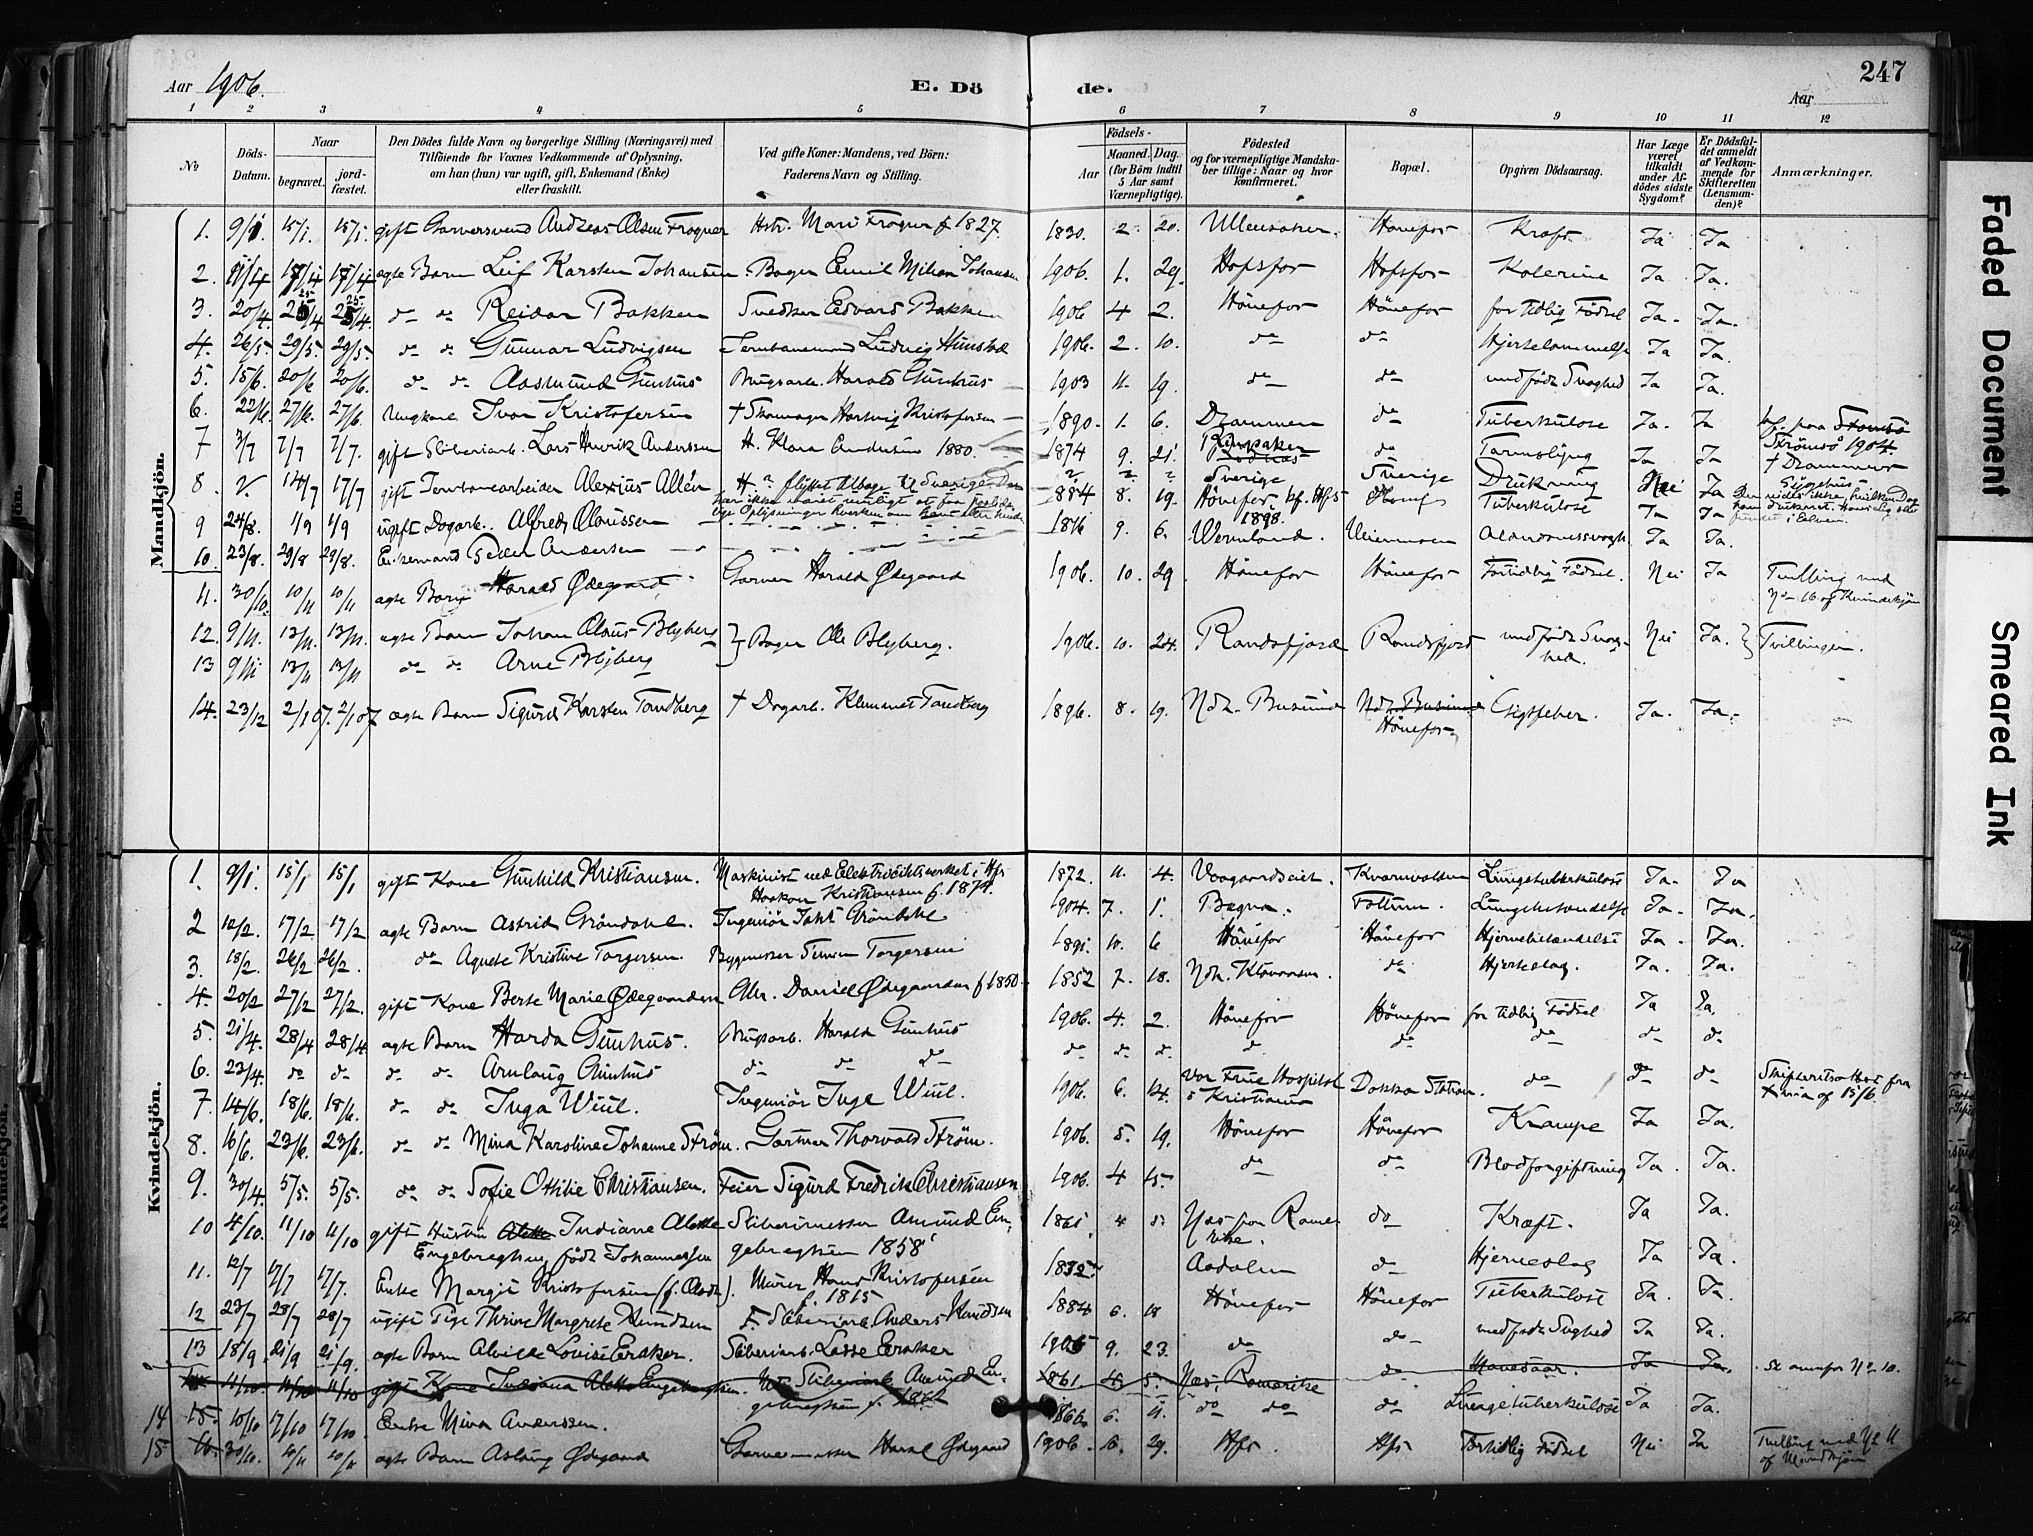 Aar 1906.
E. Dö
de.
Aar
247
1 2 3 4 5 6 7 8 9 10 11 12
No
Döds-Datum.
Naar
begravet.
jord-fæstet.
Den Dödes fulde Navn og borgerlige Stilling (Næringsvei) med
Tilföiende for Voxnes Vedkommende af Oplysning,
om han (hun) var ugift, gift, Enkemand (Enke)
eller fraskilt.
Ved gifte Koner: Mandens, ved Börn:
Faderens Navn og Stilling.
Födsels-
Aar
Maaned. Dag.
(for Börn indtil
5 Aar samt
Værnepligtige).
Födested
og for værnepligtige Mandska-
ber tillige: Naar og hvor
konfirmeret.
Bopæl.
Opgiven Dödsaarsag.
Har Læge
været
tilkaldt
under Af-
dödes sidste
Sygdom?
Er Dödsfal-
det anmeldt
af Vedkom-
mende for
Skifteretten
(Lensman-
den)?
Anmærkninger.
Mandkjön.
1. 9/1 15/1 15/1 gift Garversvend Andreas Olsen Frogner Hstr. Mari Frogner f 1827. 1830. 2. 20. Ullensaker. Hönefos Kræft. Ja Ja
2. 11/4 17/4 17/4 ægte Barn Leif Karsten Johansen. Bager Emil Johansen 1906. 1. 29. Hofsfos Hofsfos Kolerine Ja Ja.
3. 20/4. 25/4 25/4. do do Reidar Bakken Snedker Edvard Bakken 1906 4 2. Hönefos Hönefos for tidlig Födsel Ja. Ja.
4. 26/5. 29/5. 29/5. do do Gunnar Ludvigsen Jernbanemand Ludvig 1906. 2. 10. do do Hjertelammelse Ja Ja.
5. 15/6. 20/6 20/6. do do Aasmund Gunhus Brugsarb. Harald Gunhus 1903 11. 19. do do medfödt Svaghed Ja Ja.
6. 22/6. 27/6. 27/6. Ungkarl Ivar Kristofersen † Skomager Hartvig Kristofersen 1890. 1. 6. Drammen do Tuberkulose Ja. Ja kf. paa Strömsö 1904
7 3/7 7/7 7/7. gift Sliberiarb. Lars Henrik Anderssen H. Klara Andersen 1880. 1874 9. 21. do Ja Ja † Drammens Sygehus
8. 14/7 17/7 gift Jernbanearbeider Alexius Allén H. ? flyttet tilbage til Sverige. ? ? ? Sverige Sverige Drukning Nei Ja
9 24/8. 1/9 1/9 ugift Dagarb. Alfred Olaussen 1884 8. 19. Hönefos kf. Hfs 1898. Tuberkulose Ja Ja
10. 23/8. 29/8 29/8. Enkemand Peder Andersen 1816 9. 6. Vermland. Veienmoen Alderdomssvagh. Ja Ja.
11. 30/10. 10/11 10/11 ægte Barn Harald Ödegaard Garver Harald Ödegaard 1906. 10. 29. Hönefos Hönefos Fortidlig Födsel. Nei Ja Tvilling med No 16 af Kvindekjön
12. 9/11. 13/11. 13/11. ægte Barn Johan Olaus Blyberg } Bager Ole Blyberg. 1906. 10. 24. Randsfjord Randsfjord medfödt Svaghed. Nei Ja. } Tvillinger.
13 9/11 13/11 13/11 do do Arne Blyberg
14. 23/12 2/1 07. 2/1 07 ægte Barn Sigurd Karsten Tandberg † Dagarb. Klemmet Tandberg 1896. 8. 19. Ndr. Busund Ndr. Busund Hönefos Gigtfeber. Ja. Ja.
Kvindekjön.
1. 9/1. 15/1 15/1 gift Kone Gunhild Kristiansen. Maskinist ved Elektricitetsverket i Hfs Haakon Kristiansen f. 1874. 1872. 11. 4. Vaagaardseiet. Kvernvolden Lungetuberkulose Ja. Ja
2 12/2. 17/2. 17/2 ægte Barn Astrid Gröndahl. Ingeniör Gröndahl 1904. 7. 1. Bægna. Tottum. Lungebetændelse Ja. Ja.
3. 18/2. 26/2 26/2. do Agnete Kristine Torgersen. Bygmester Simen Torgersen 1891. 10. 6 Hönefos Hönefos Hjernebetændelse Ja. Ja.
4. 20/2 27/2 27/2. gift Kone Berte Marie Ödegaarden Arb. Daniel Ödegaarden f 1850. 1852 7. 18. Ndr. do Hjerteslag. Ja. Ja.
5. 21/4. 28/4 28/4 ægte Barn Harda Gunhus. Brugsarb. Harald Gunhus 1906. 4. 2. Hönefos Hönefos for tidlig Födsel Ja Ja.
6. 23/4. do do do do Arnlaug Gunhus do do do do do do do do do do do
7. 14/6. 18/6. 18/6. do do Inga Wiul. Ingeniör Inge Wiul. 1906. 6. 14. Vor Frue Hospital i Kristiania Dokka Station. do do do Skifteretsattest fra Kr.nia af 15/6.
8. 16/6. 23/6. 23/6. do do Mina Karoline Johanne Ström. Gartner Thorvald Ström. 1906. 5. 19. Hönefos Hönefos Krampe Ja Ja.
9. 30/4. 5/5. 5/5. do do Sofie Ottilie Christiansen. Feier Sigurd Fredrik Christiansen 1906. 4 15. do do Blodforgiftning Ja. Ja.
10 4/10. 11/10 11/10 gift Hustru Alette Indiane Alette Engebregtsen födt Johannessen Sliberimester Amund Engebregtsen 1858 1861 4 5. Næs paa Romerike. do Kræft. Ja Ja.
11. 12/7 17/7 17/7. Enke Margit Kristofersen Murer Hans Kristofersen f. 1815 1832 Aadalen do Hjerneslag Ja Ja.
12 23/7 28/7 28/7 ugift Pige Thrine Margrete Knudsen F. Sliberiarb. Anders Knudsen 1884 6. 18 Hönefos Hönefos Tuberkulose Ja. Ja.
13 18/9 21/9 21/9. ægte Barn Alvilde Lovise Eraker. Sliberiarb. Lasse Eraker 1905 9. 23. do do medfödt Svaghed Ja Ja.
11/10. 11/10 11/10 gift Kone Indiana Alette Engebregtsen. M. Sliberiarb. Amund Engebregtsen f. 1861. 4 5. Næs, Romerike do Mavesaar. Ja Ja. Se ovenfor No. 10.
14 15. 10/10 17/10 17/10. Enke Mina Anderssen. 1866. 6. 11. do do do Lungetuberkulose Ja Ja.
15 16. 30/10. 10/11 10/11 ægte Barn Aslaug Ödegaard Garvermester Harald Ödegaard 1906. 10. 29. Hfs. Hfs Fortidlig Födsel Nei Ja Tvilling med No 11 af Mandkjön
Faded Document
Smeared Ink